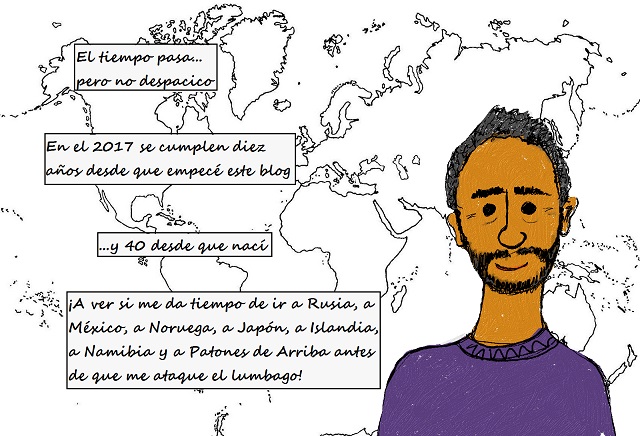 El tiempo pasa...
pero no despacico
En el 2017 se cumplen diez
años desde que empecé este blog
...y 40 desde que nací
¡A ver si me da tiempo de ir a Rusia, a
México, a Noruega, a Japón, a Islandia,
a Namibia y a Patones de Arriba antes
de que me ataque el lumbago!